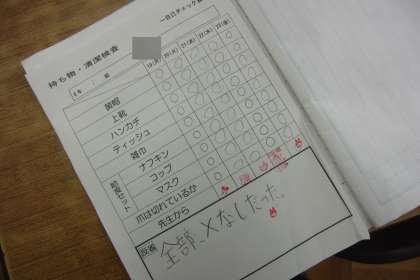 持ち物・清潔検査
一日ロチェック
1年 組
19(月) 20(火) 21(水) 22(木) 23(金)
歯帽
上靴
ハンカチ
ティッシュ
雑巾
給食セット
ナフキン
コップ
マスク
爪は切れているか
先生から
反省
全部、×なしだった。